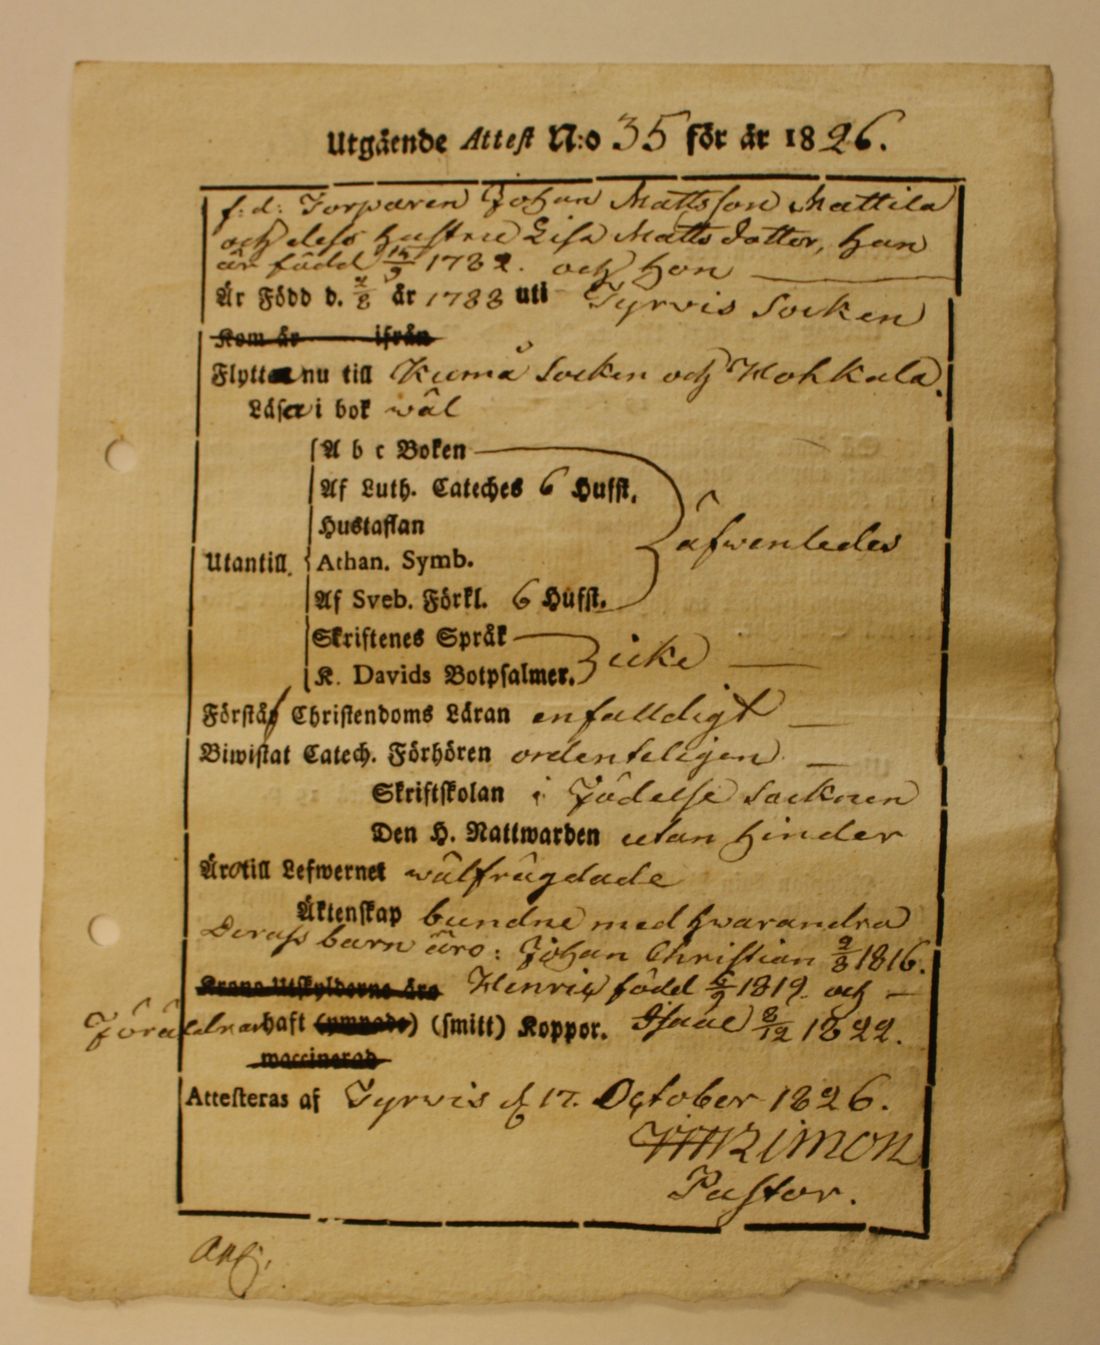 Utgående Attest N:o 35 för år 1826.
f: d: Torparen Johan Mattsson Mattila
och dess hustru Lisa Matts dotter, han
är född 15/9 1782. och hon
Är Född d. 2/8 år 1788 uti Tyrvis Socken
Kom år ifrån
Flytta nu till Kumå Socken och Kohkala.
Läser i bok wäl
A b c Boken
Af Luth. Cateches 6 Hufst.
Hustaflan
äfwenledes
Utantill. Athan. Symb.
Af Sveb. Förkl. 6 Hufst.
Skriftenes Språk
icke
K. Davids Botpsalmer.
Förstå Christendoms Läran enfalldigt
Biwistat Catech. Förhören ordenteligen
Skriftskolan i Födelse Socknen
Den H. Nattwarden utan hinder
Äro till Lefwernet wälfrägdade
Äktenskap bundne med hwarandra
Derass barn äro: Johan Christian 2/8 1816.
Krono Utskylderne äro Henric född 1819. och
Föräldrar haft (ympade) (smitt) Koppor. Isaac 8/12 1822.
waccinerad
Attesteras af Tyrvis d. 17. October 1826.
Pastor.